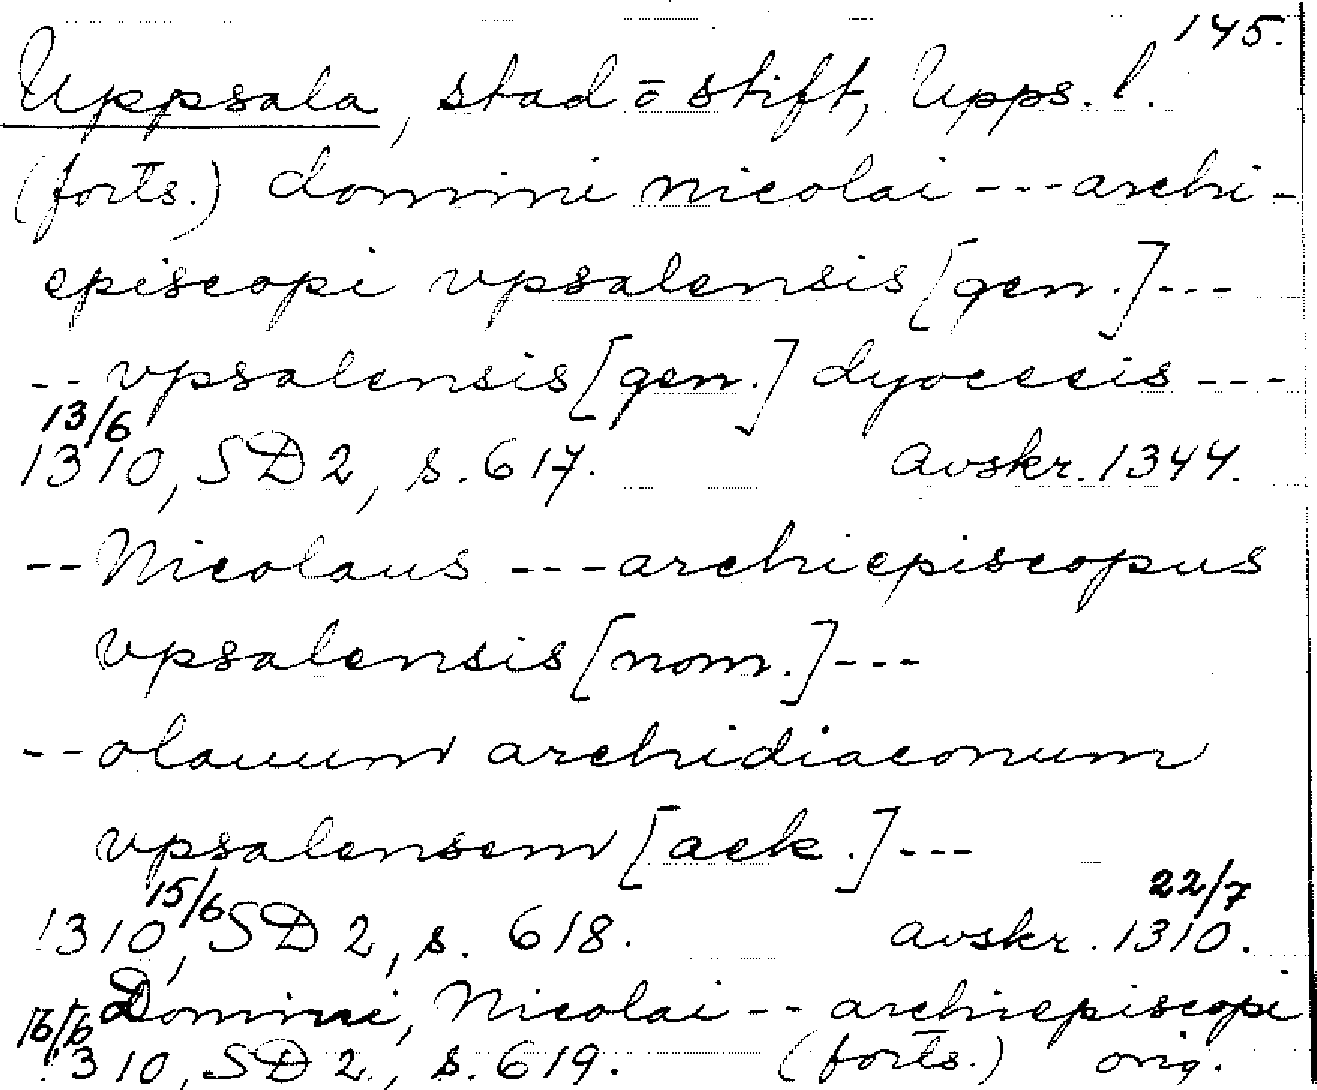 145.
Uppsala, stad o stift, Upps. l.
(forts.) domini nicolai --- archi-
episcopi vpsalensis [gen.] ---
-- vpsalensis [gen.] dyocesis ---
13/6
1310, SD 2, s. 617. avskr. 1344.
-- Nicolaus --- archiepiscopus
vpsalensis [nom.] ---
-- olauum archidiaconum
vpsalensem [ack.] ---
15/6 22/7
1310, SD 2, s. 618. avskr. 1310.
Domini, Nicolai -- archiepiscopi
16/6
1310, SD 2, s. 619. (forts.) orig.